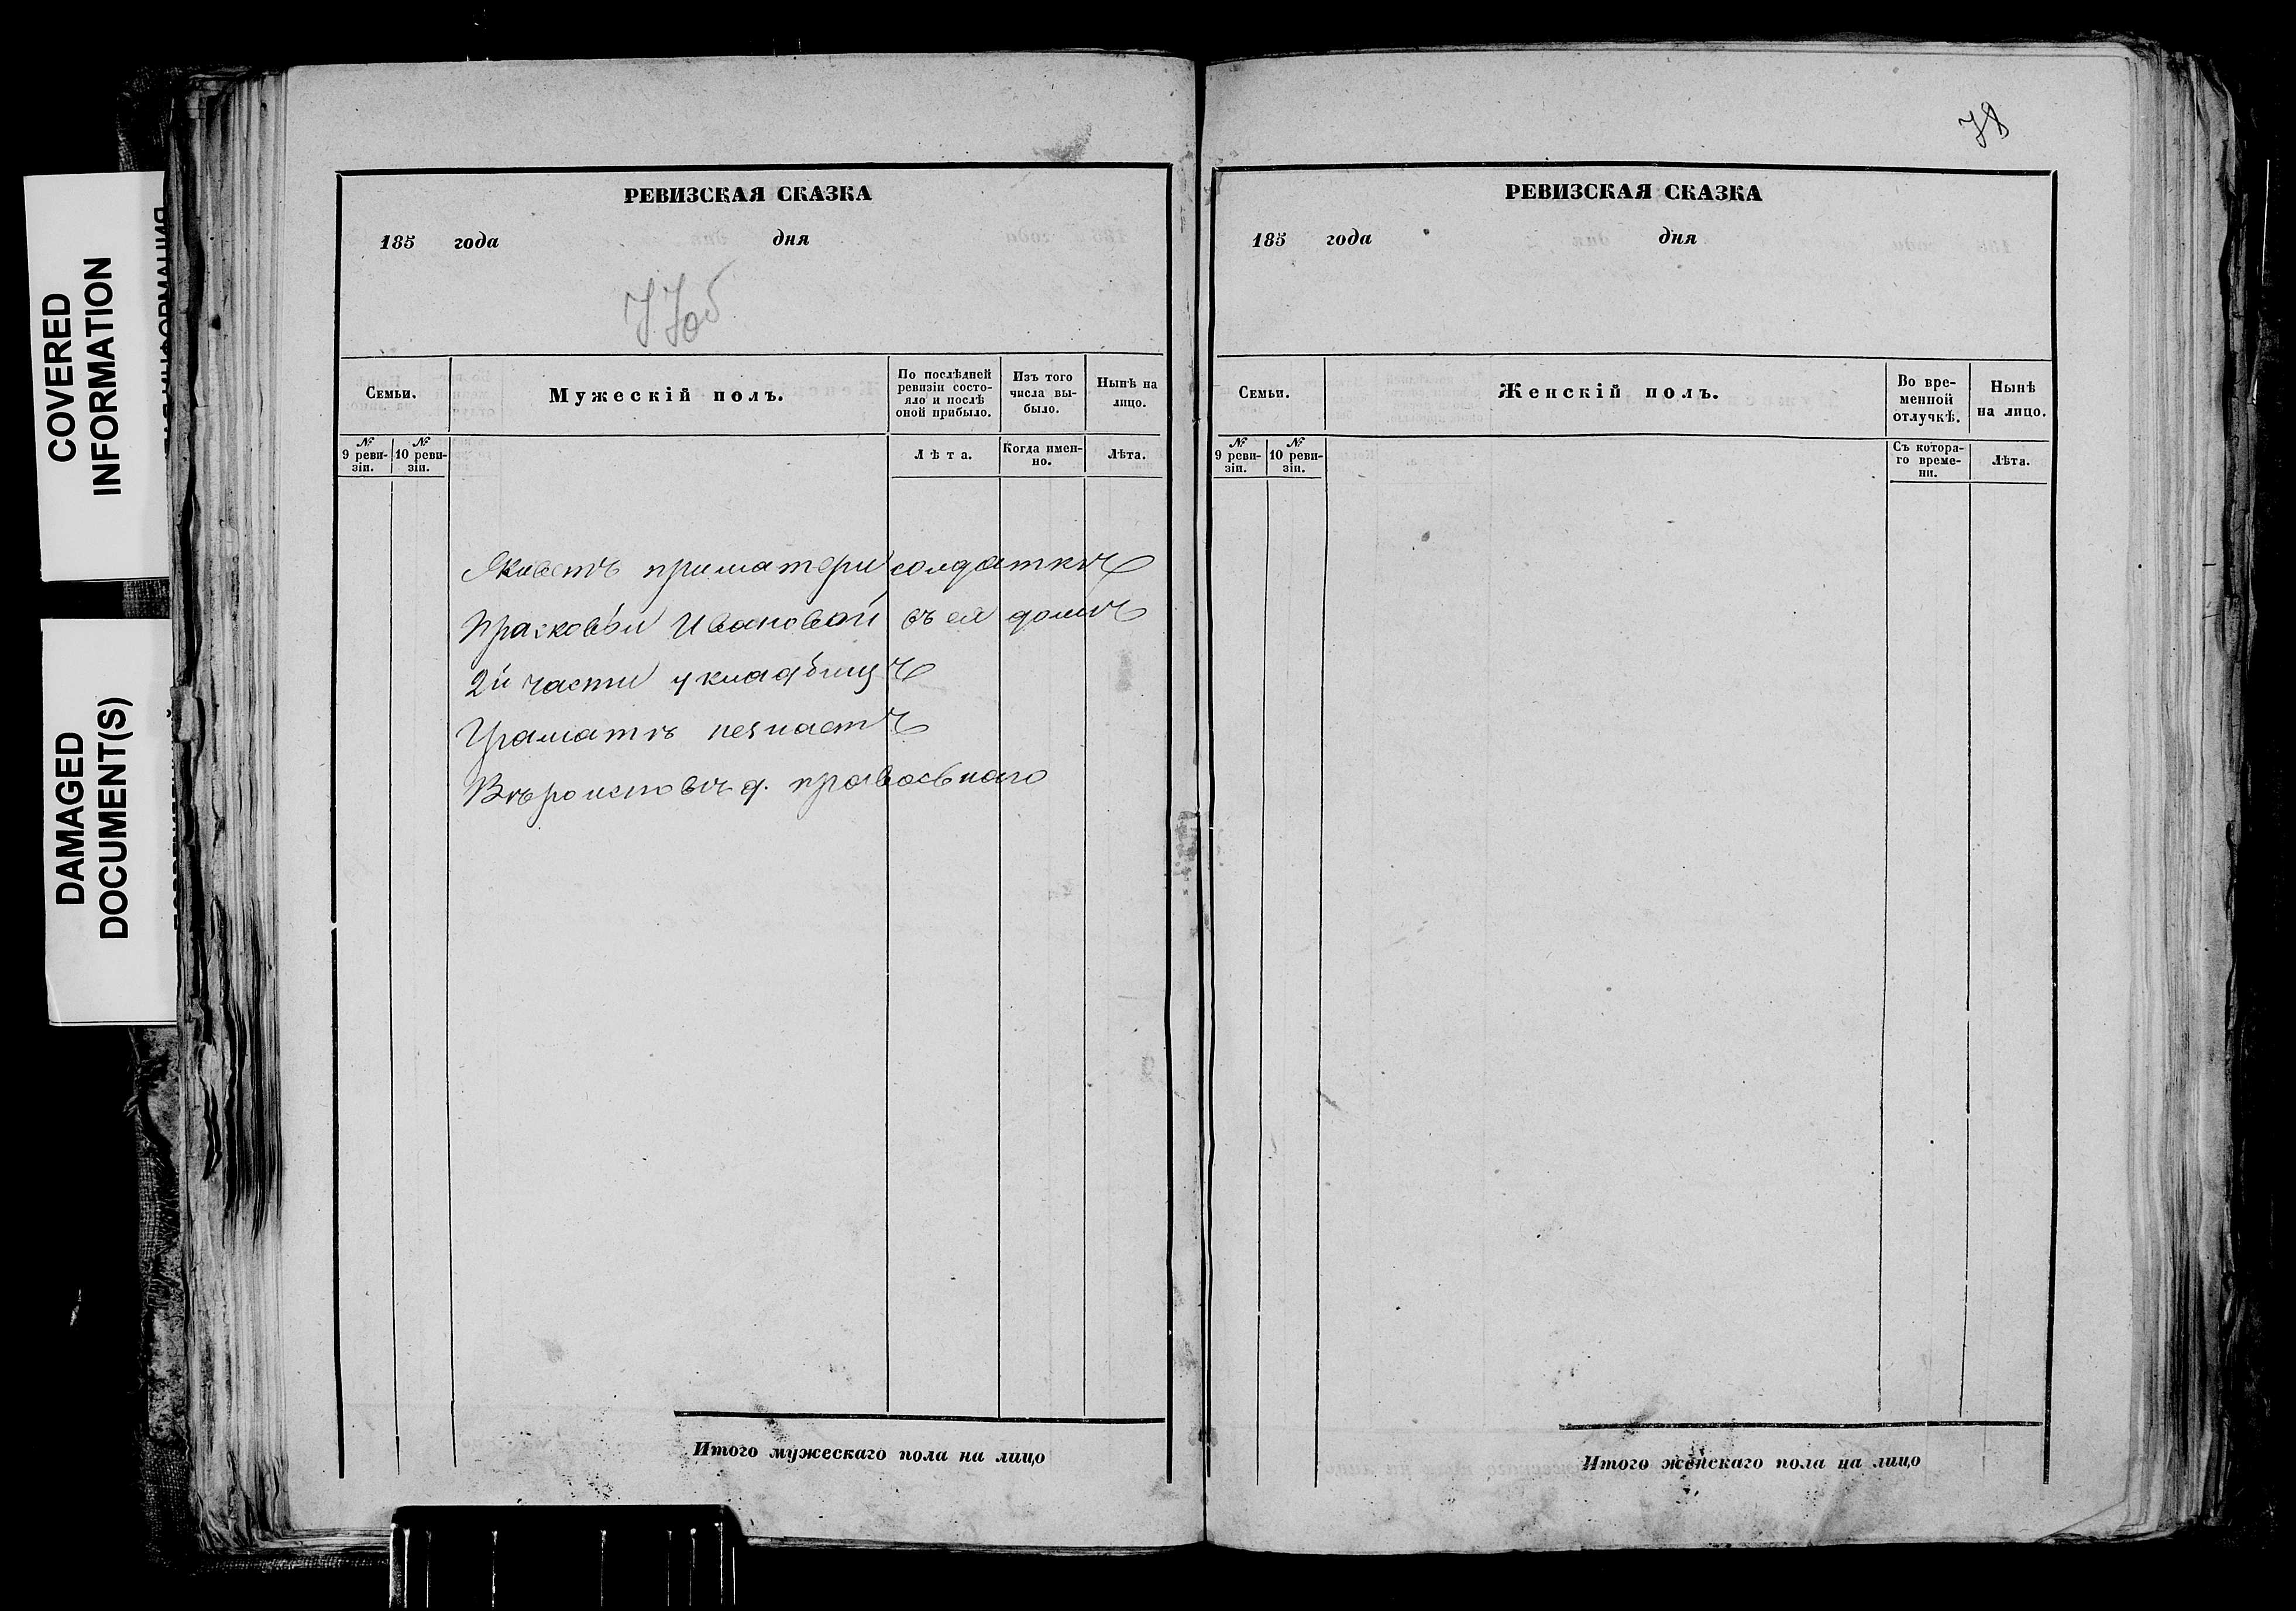 COVERED
INFORMATION
DAMAGED
DOCUMENT(S)
РЕВИЗСКАЯ СКАЗКА
185 года дня
77об
Семьи.
Мужескій полъ.
По послѣдней ревизіи состо-
яло и послѣ оной прибыло.
Изъ того числа вы-
было.
Нынѣ на лицо.
№ 9 реви-
зіи.
№ 10 реви-
зіи.
Лѣта.
Когда имен-
но.
Лѣта.
Живетъ приматери солдаткѣ
Прасковьи Ивановой въ ея домѣ
2й части укладбищѣ
Граматѣ незнаетъ
Вѣроисповѣд. правосьнаго
Итого мужескаго пола на лицо
78
РЕВИЗСКАЯ СКАЗКА
185 года дня
Семьи.
Женскій полъ.
Во вре-
менной
отлучкѣ.
Нынѣ
на лицо.
№ 9 реви-
зіи.
№ 10 реви-
зіи.
Съ котора-
го време-
ни.
Лѣта.
Итого женскаго пола на лицо